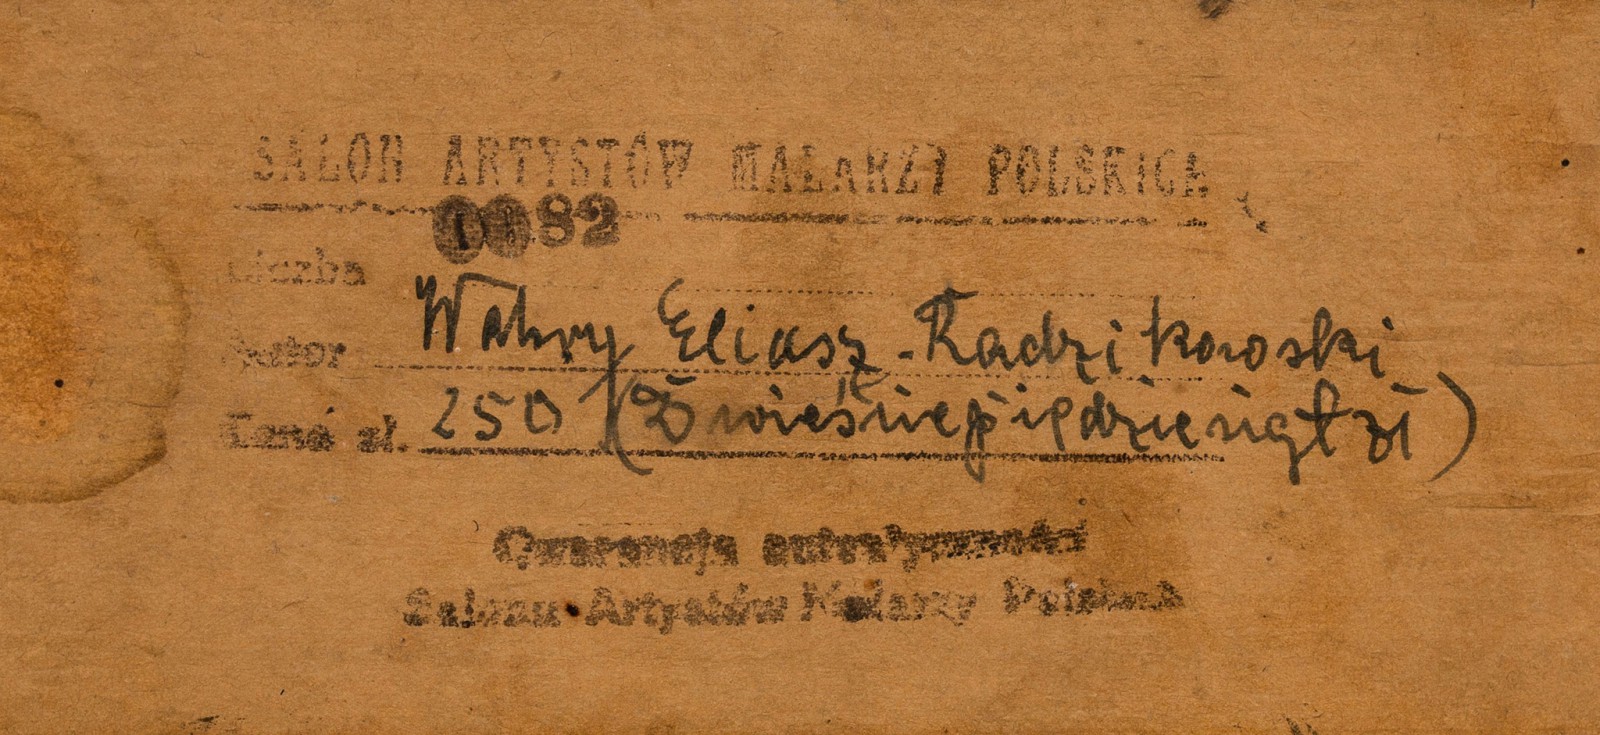 SALON ARTYSTÓW MALARZY POLSKICH
1182
Liczba
Autor Walery Eliasz-Radzikowski
Cena zł. 250 (Dwieściepięćdziesiąt zł)
Gwarancja autentyczności
Salonu Artystów Malarzy Polskich